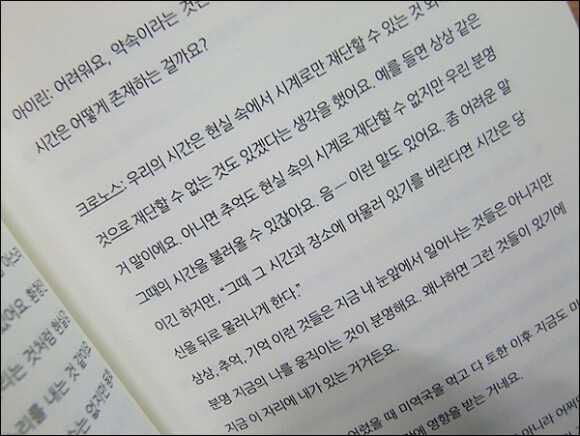 아이린: 어려워요, 약속이라는 것은
시간은 어떻게 존재하는 걸까요?
크로노스: 우리의 시간은 현실 속에서 시계로만 재단할 수 있는 것 외
것으로 재단할 수 없는 것도 있겠다는 생각을 했어요. 예를 들면 상상 같은
거 말이에요. 아니면 추억도 현실 속의 시계로 재단할 수 없지만 우린 분명
그때의 시간을 불러올 수 있잖아요. 음— 이런 말도 있어요. 좀 어려운 말
이긴 하지만, “그때 그 시간과 장소에 머물러 있기를 바란다면 시간은 당
신을 뒤로 물러나게 한다.”
상상, 추억, 기억 이런 것들은 지금 내 눈앞에서 일어나는 것들은 아니지만
분명 지금의 나를 움직이는 것이 분명해요. 왜냐하면 그런 것들이 있기에
지금 이 자리에 내가 있는 거거든요.
어렸을 때 미역국을 먹고 다 토한 이후 지금도 미
에 영향을 받는 거네요.
아니라 어쩌
없어요.
라는 것처럼
리를 내는 것 같아요
는 없지만